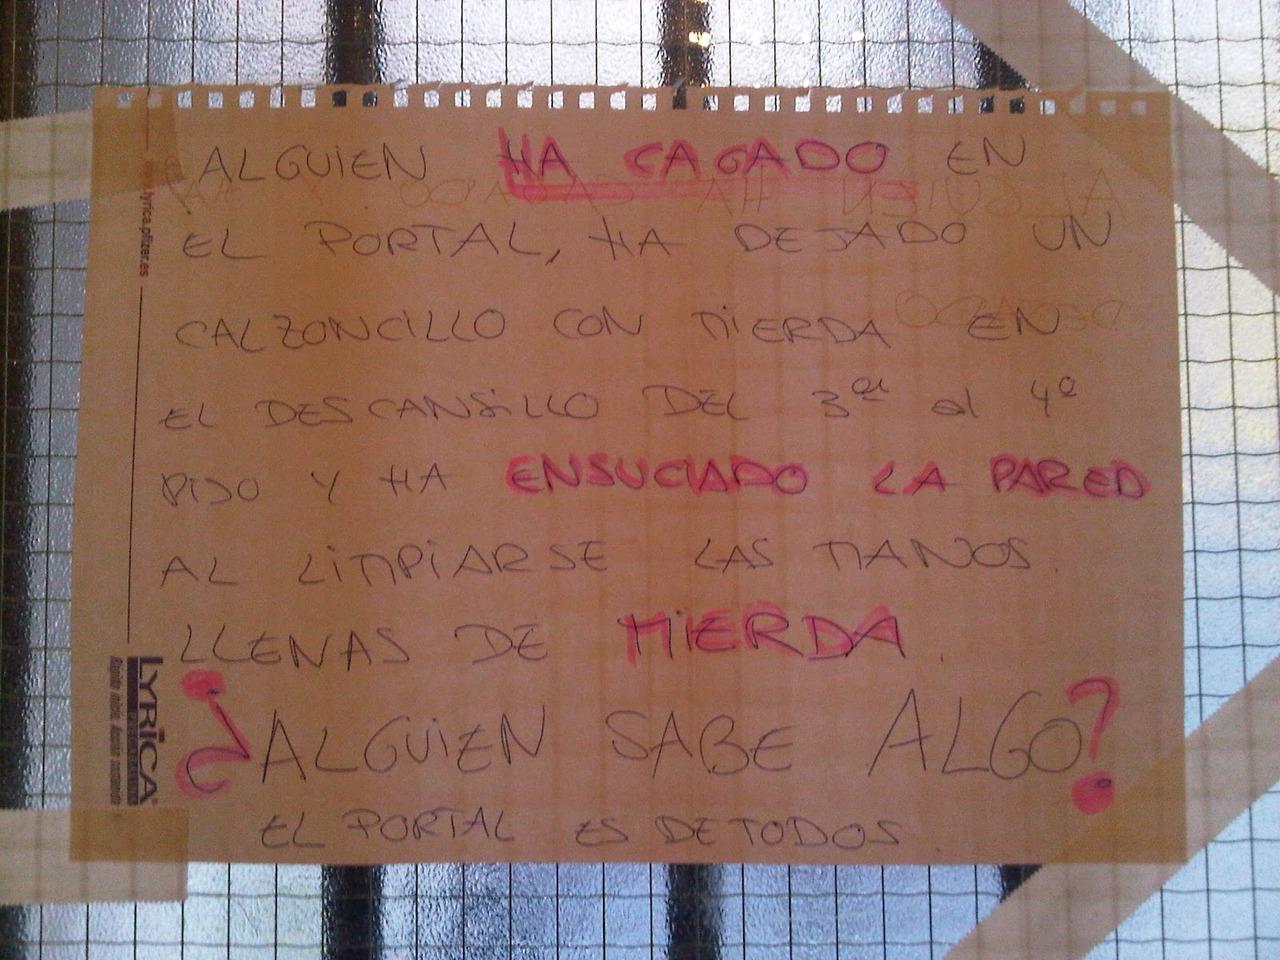 ALGUIEN HA CAGADO EN
EL PORTAL, HA DEJADO UN
CALZONCILLO CON MIERDA EN
EL DESCANSILLO DEL 3er al 4º
PISO Y HA ENSUCIADO LA PARED
AL LIMPIARSE LAS MANOS
LLENAS DE MIERDA.
¿ALGUIEN SABE ALGO?
EL PORTAL ES DE TODOS
www.lyrica.pfizer.es
LYRICA